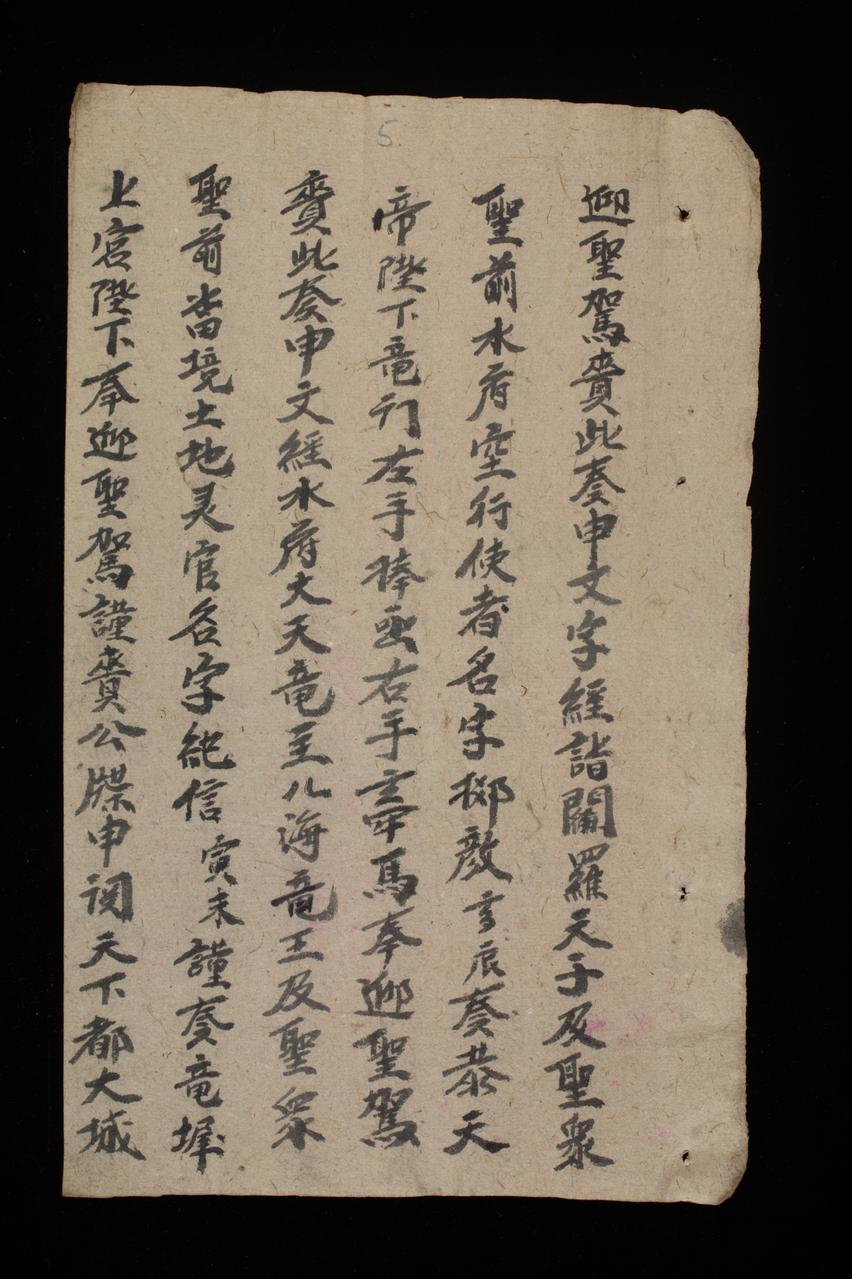 5.
迎聖駕賫此奏申文字經詣閻羅天子及聖衆
聖前水府空行使者名字擲啟玄辰奏恭天
帝陛下竜行左手捧 右手 馬奉迎聖駕
賫此奏申文經水府大天竜王八海竜王及聖衆
聖前當境土地灵官名字純信寅未謹奏竜墀
上宮陛下奉迎聖駕謹賫公牒申词天下都大城